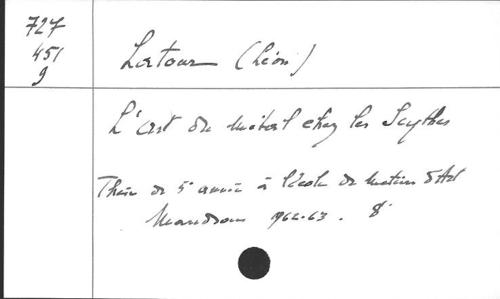 727
451
9
Latour (Léon)
L'art du métal chez les Scythes
Thèse de 5e année à l'école de Metiers d'Art
1962-63. 8°